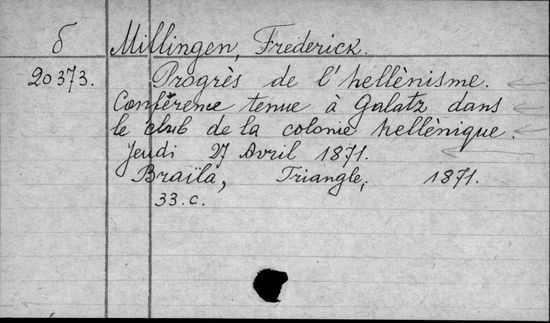 б Millingen, Frederick.
20373. Progrès de l'hellènisme.
Confèrence tenue à Galatz dans
le club de la colonie hellènique.
Jeudi 27 Avril 1871.
Braïla, Triangle, 1871.
33.c.